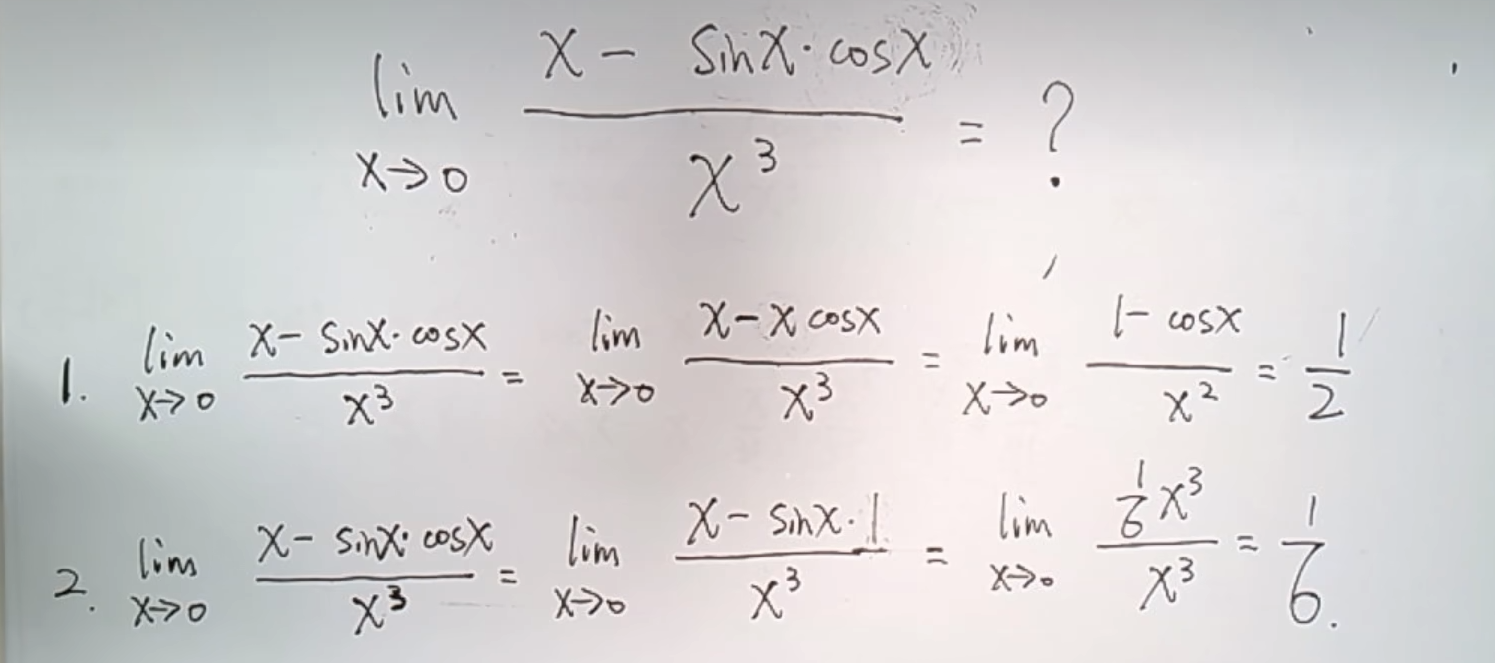 lim x→0 (x - sinx·cosx)/x³ = ?
1. lim x→0 (x - sinx·cosx)/x³ = lim x→0 (x - x cosx)/x³ = lim x→0 (1 - cosx)/x² = 1/2
2. lim x→0 (x - sinx·cosx)/x³ = lim x→0 (x - sinx·1)/x³ = lim x→0 (1/6 x³)/x³ = 1/6.